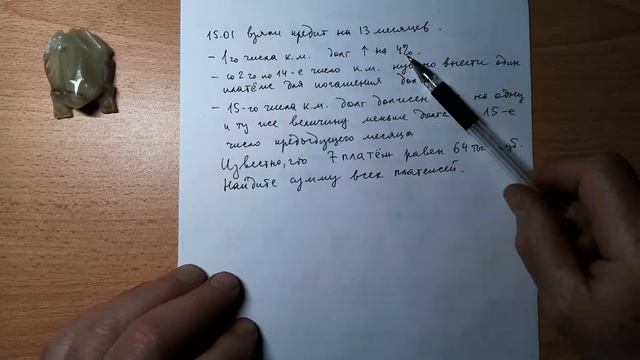 15.01 взяли кредит на 13 месяцев.
- 1го числа к.м. долг ↑ на 4%.
- со 2 го по 14-е число к.м. внести один
платёж для погашения
- 15-го числа к.м. долг должен на одну
и ту же величину меньше долга 15-е
число предыдущего месяца
Известно, что 7 платёж равен 64 т
Найдите сумму всех платежей.